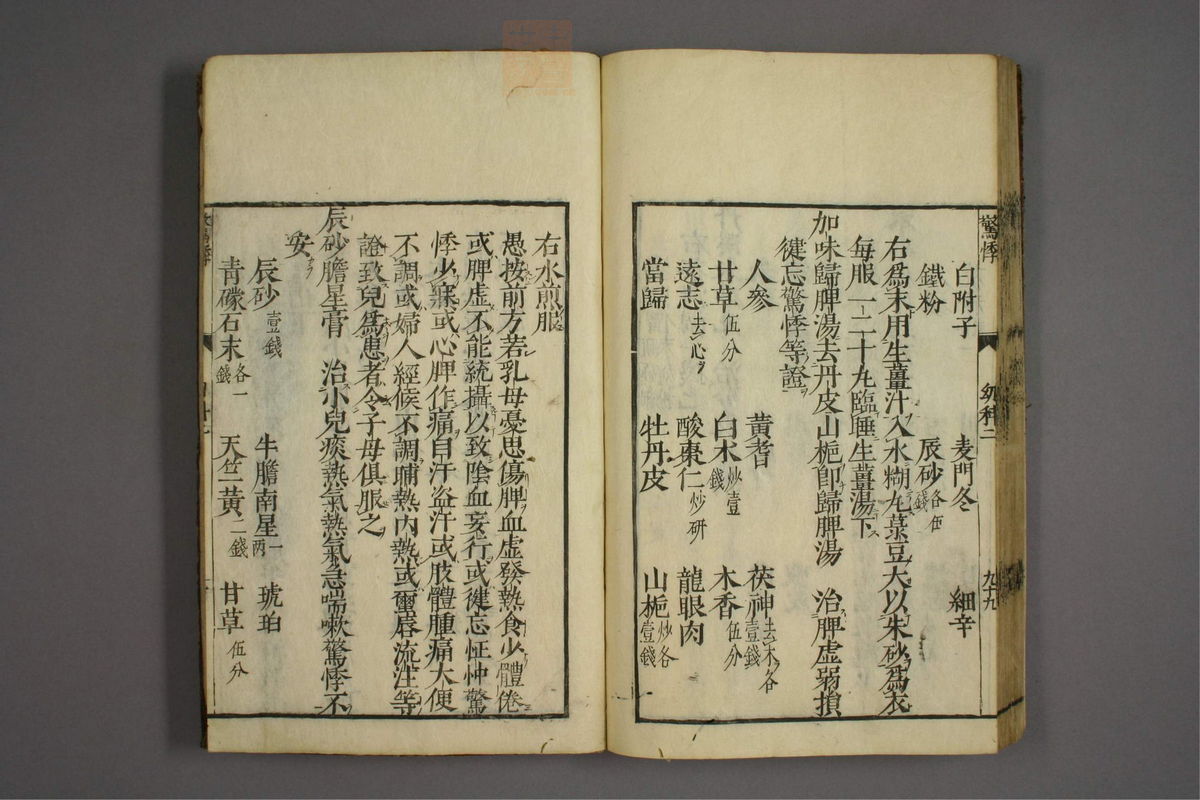 驚悸 幼科二 九十九
白附子 麦門冬 細辛
鐵粉 辰砂各伍錢
右爲末用生薑汁入水糊丸菉豆大以朱砂爲衣
每服一二十丸臨睡生薑湯下
加味歸脾湯去丹皮山梔卽歸脾湯 治脾虛弱損
健忘驚悸等證
人參 黃耆 茯神去木各壹錢
甘草伍分 白朮炒壹錢 木香伍分
遠志去心 酸棗仁炒研 龍眼肉
當歸 牡丹皮 山梔炒各壹錢
右水煎服
愚按前方若乳母憂思傷脾血虛發熱食少體倦
或脾虛不能統攝以致陰血妄行或健忘怔忡驚
悸少寐或心脾作痛自汗盜汗或肢體腫痛大便
不調或婦人經候不調晡熱內熱或 唇流注等
證致兒爲患者令子母俱服之
辰砂膽星膏 治小兒痰熱氣熱氣急喘嗽驚悸不
安
辰砂壹錢 牛膽南星一兩 琥珀
青礞石末各一錢 天竺黃二錢 甘草伍分